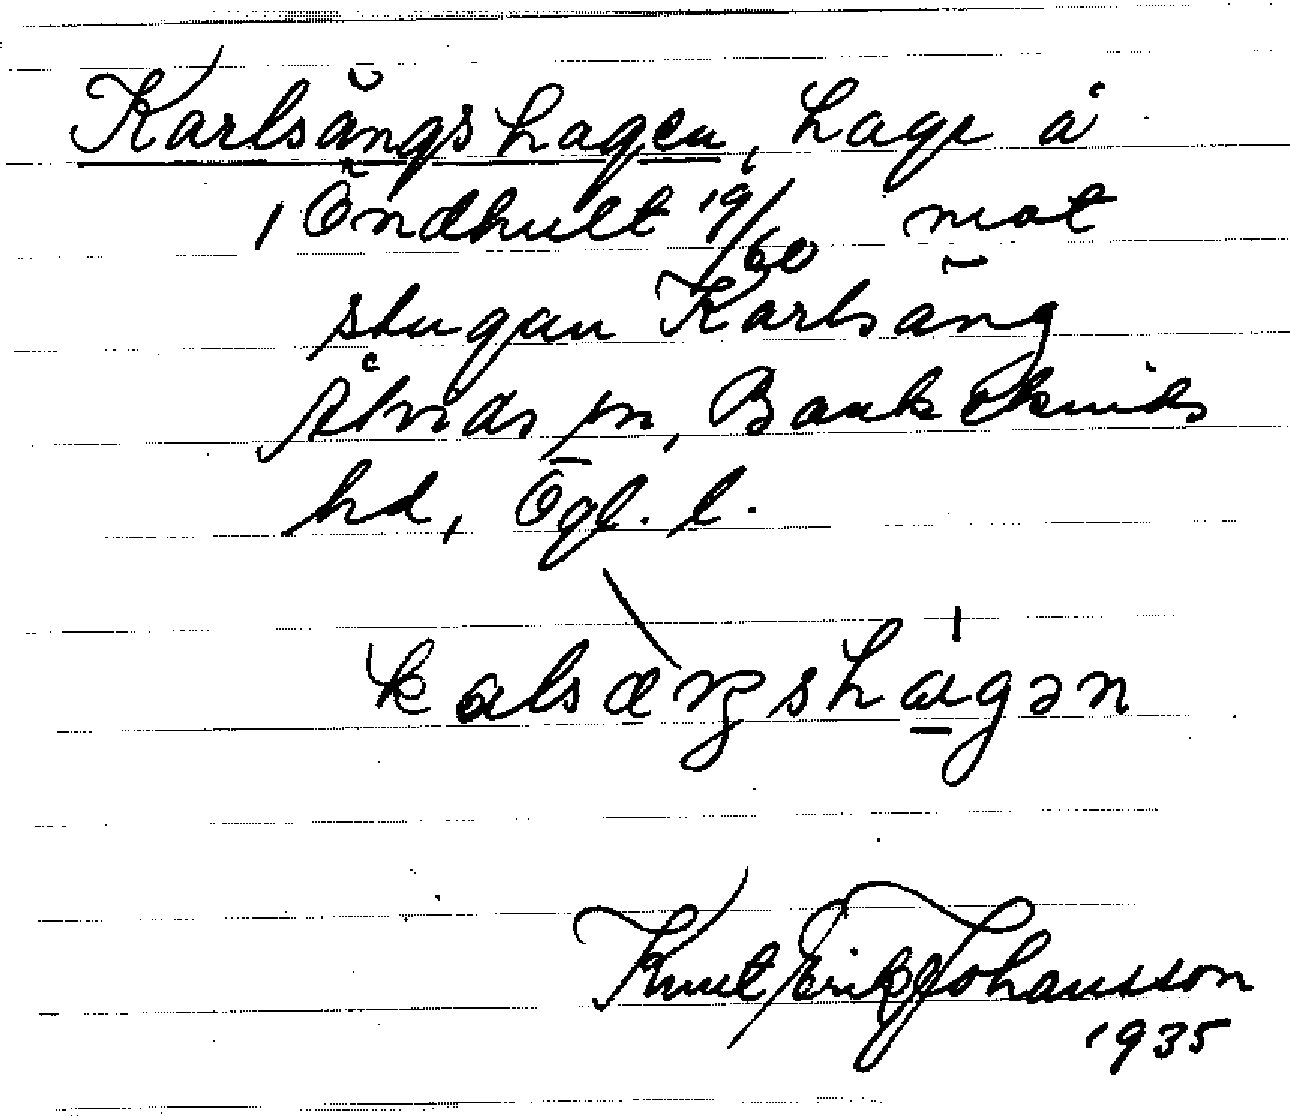 Karlsängshagen, hage å
1 Öndhult 19/60 mot
stugan Karlsäng
Åtvids sn, Bankekinds
hd, Ögl. l.
kalsæŋshɑgən
Knut Erik Johansson
1935